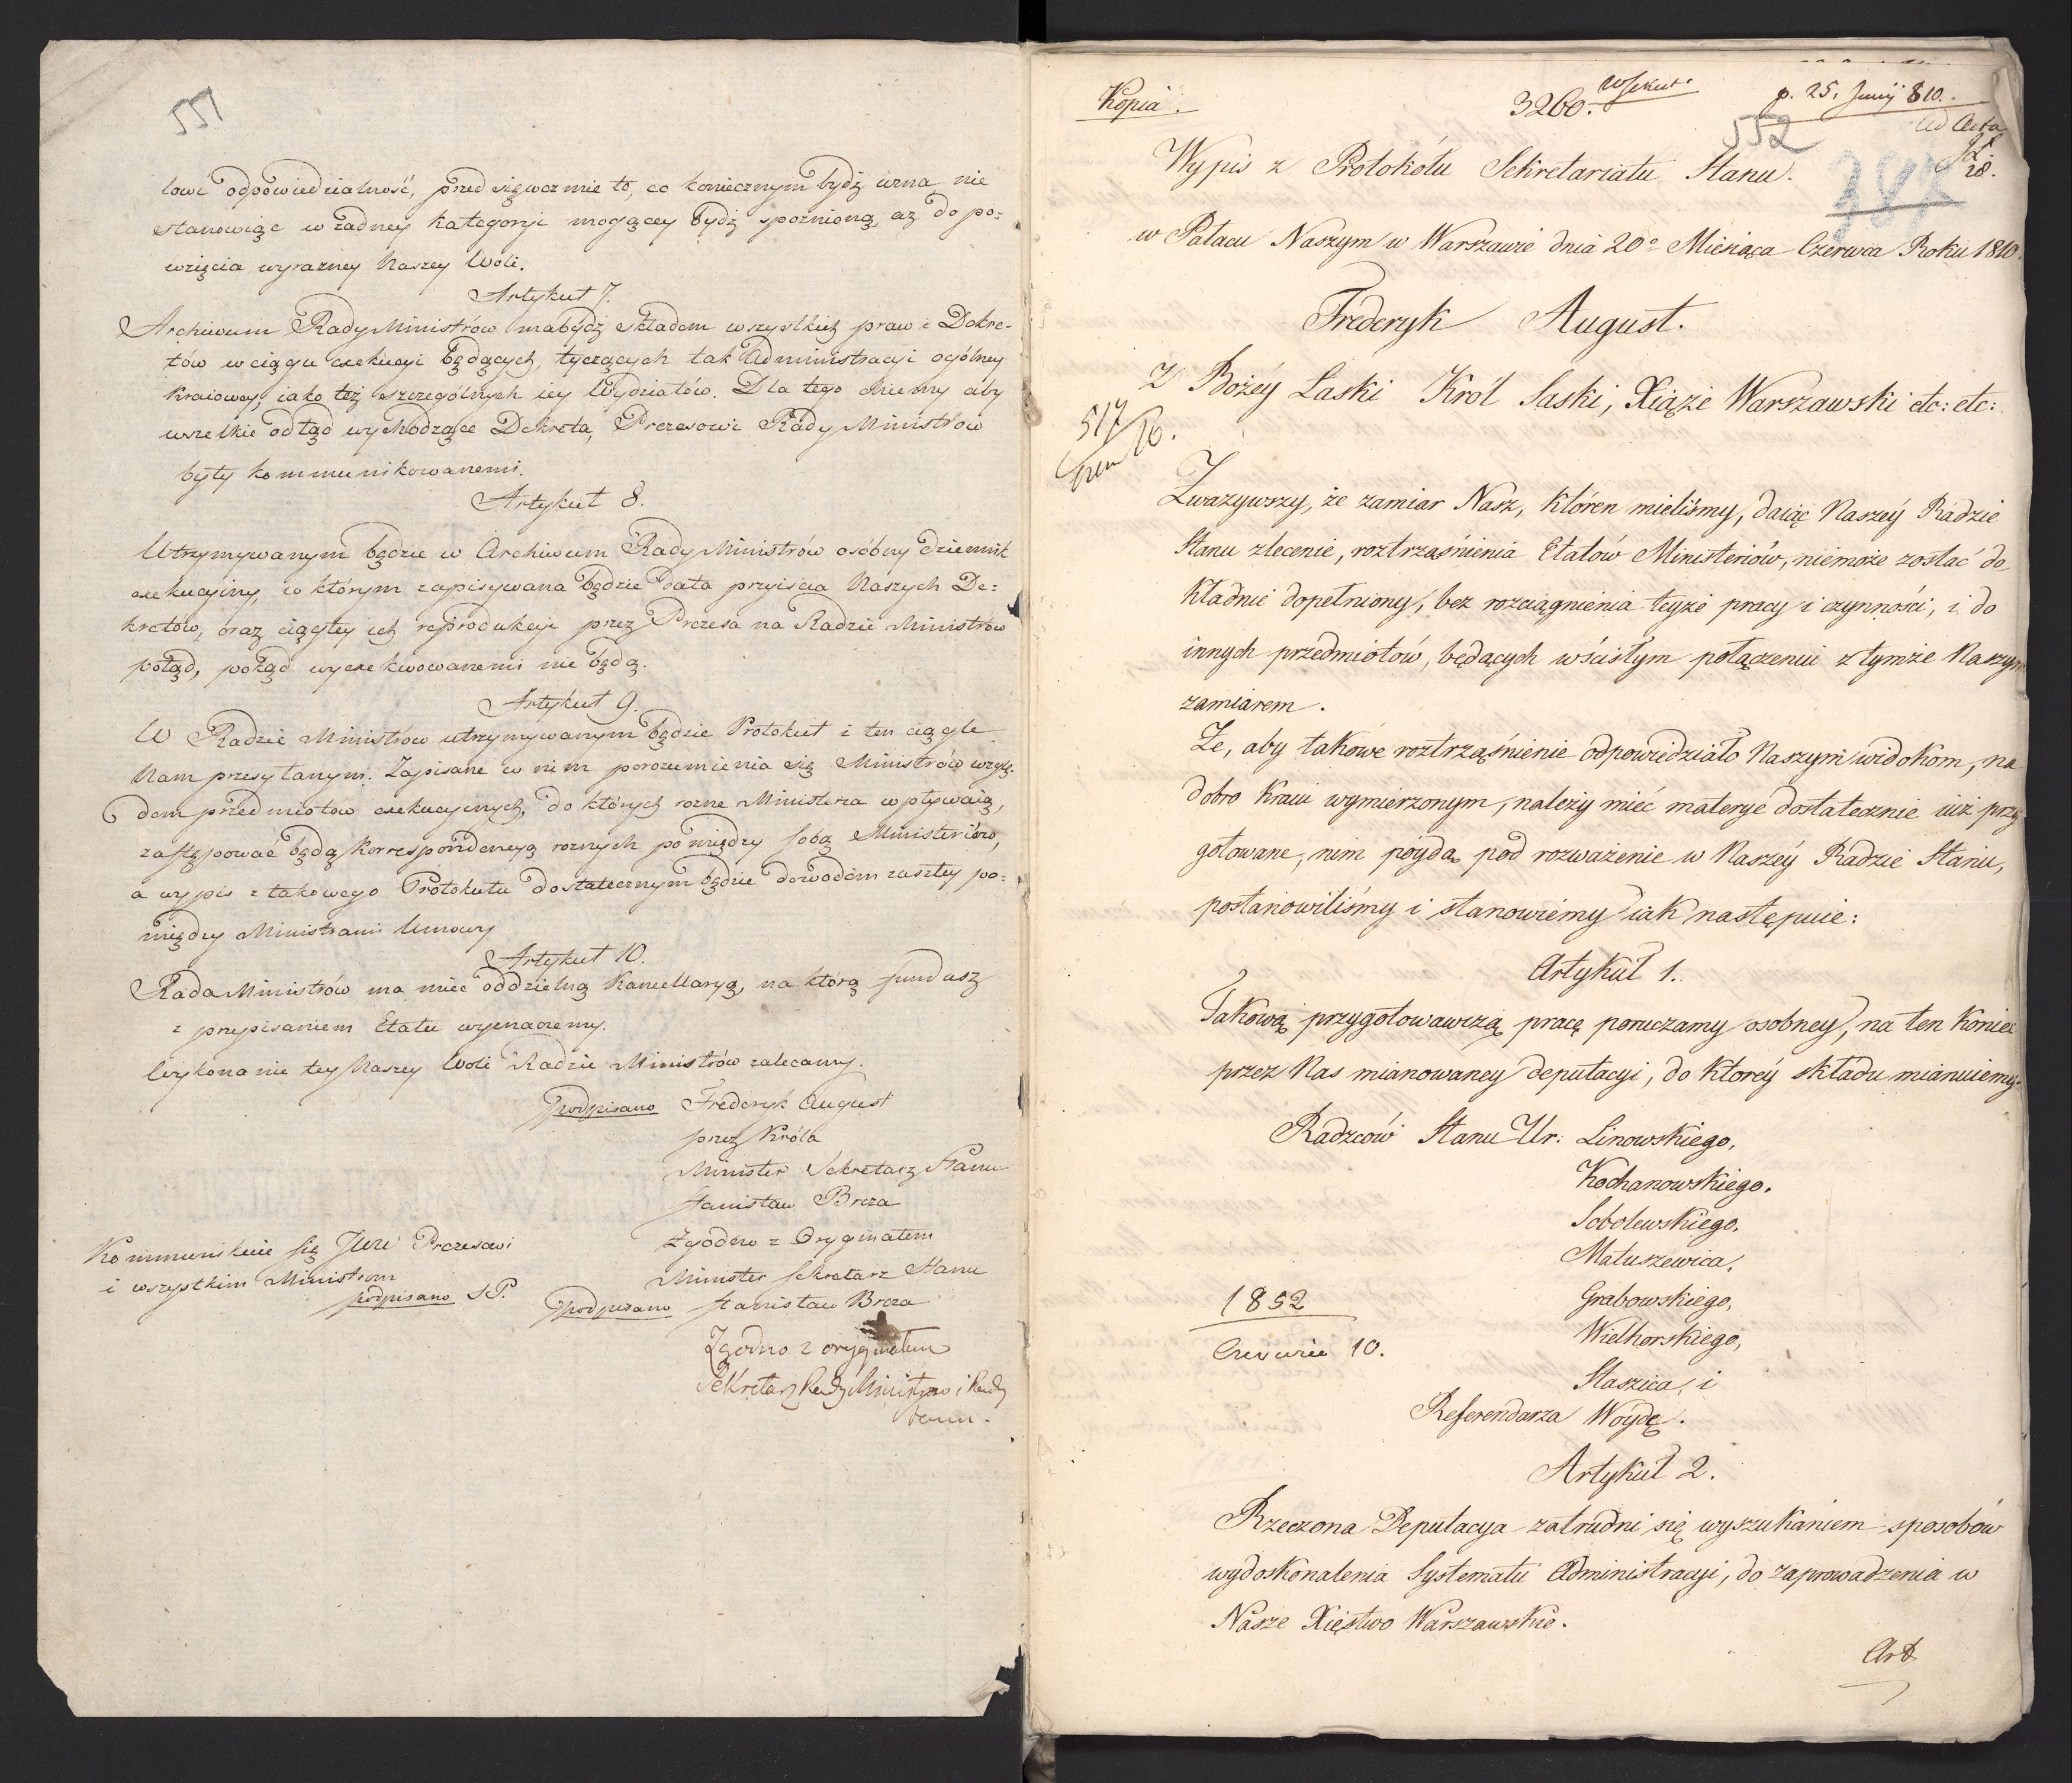 551
łowi odpowiedzialność, przed sięwezmie to, co koniecznym bydź uzna, nie
stanowiąc w żadney kategoryi mogącey bydź spoźnioną, aż do po=
wzięcia wyrazney Naszey Woli.
Artykuł 7.
Archiwum Rady Ministrów ma bydź składem wszystkich praw i Dekre-
tów w ciągu exekucyi będących, tyczących tak Administracyi ogólney
kraiowey, iako też szczególnych iey Wydziałów. Dla tego chcemy aby
wszelkie odtąd wychodzące Dekreta, Prezesowi Rady Ministrów
były kommunikowanemi.
Artykuł 8.
Utrzymywanym będzie w Archiwum Rady Ministrów osóbny dziennik
exekucyiny, w którym zapisywana będzie data przyiścia Naszych De=
kretów, oraz ciągłey ich reprodukcyi przez Prezesa na Radzie Ministrów
potąd, pokąd wyexekwowanemi nie będą.
Artykuł 9.
W Radzie Ministrów utrzymywanym będzie Protokuł i ten ciągle
Nam przesyłanym. Zapisane w nim porozumienia się Ministrów wzglę-
dem przedmiotow exekucyinych, do których rozne Ministeria wpływaią,
zastępować będą korrespondencyą roznych pomiędzy sobą Ministeriów,
a wypis z takowego Protokułu dostatecznym będzie dowodem zaszłey po=
między Ministrami Umowy
Artykuł 10.
Rada Ministrów ma mieć oddzielną Kancellaryą, na którą fundusz
z przepisaniem Etatu wyznaczemy.
Wykonanie tey Naszey Woli Radzie Ministrów zalecamy.
podpisano Frederyk August
przez Króla
Minister Sekretarz Stanu
Stanisław Breza
Zgodno z Oryginałem
Minister Sekretarz Stanu
podpisano Stanisław Breza
Kommunikuie się JWW Prezesowi
i wszystkim Ministrom
podpisano SP.
Zgodno z oryginałem
Sekretarz Rady Ministrow i Rady
Stanu.
Kopia.
3260.
p. 25. Junij 810.
ad Acta
28.
552
Wypis z Protokółu Sekretariatu Stanu.
w Pałacu Naszym w Warszawie dnia 20o Miesiąca Czerwca Roku 1810.
Frederyk August.
Z Bożey Łaski Król Saski, Xiąże Warszawski etc: etc:
517
Zważywszy, że zamiar Nasz, któren mieliśmy, daiąc Naszey Radzie
Stanu zlecenie, roztrząśnienia Etatów Ministeriów, niemoże zostać do
kładnie dopełniony, bez rozciągnienia teyże pracy i czynności, i do
innych przedmiotów, będących wścisłym połączeniu z tymże Naszym
zamiarem.
Że, aby takowe roztrząśnienie odpowiedziało Naszym widokom, na
dobro kraiu wymierzonym, należy mieć materye dostatecznie iuż przy
gotowane, nim póydą pod rozważenie w Naszey Radzie Stanu,
postanowiliśmy i stanowiemy iak następuie:
Artykuł 1.
Takową przygotowawczą pracę poruczamy osobney, na ten koniec
przez Nas mianowaney deputacyi, do którey składu mianuiemy:
Radzców Stanu Ur: Linowskiego,
Kochanowskiego,
Sobolewskiego,
Matuszewica,
Grabowskiego,
Wielhorskiego,
Staszica, i
Referendarza Woydę.
1852
Czerwiec 10.
Artykuł 2.
Rzeczona Deputacya zatrudni się wyszukaniem sposobów
wydoskonalenia Systematu Administracyi, do zaprowadzenia w
Nasze Xięstwo Warszawskie.
Art